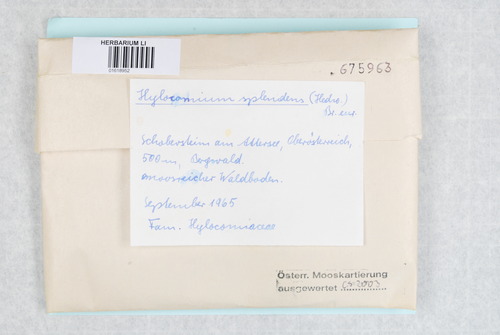 HERBARIUM LI
675963
Hylocomium splendens (Hedw.)
Br. eur.
Schoberstein am Attersee, Oberösterreich,
500m, Bergwald.
moosreicher Waldboden.
September 1965
Fam. Hylocomiaceae
Österr. Mooskartierung
ausgewertet 2003